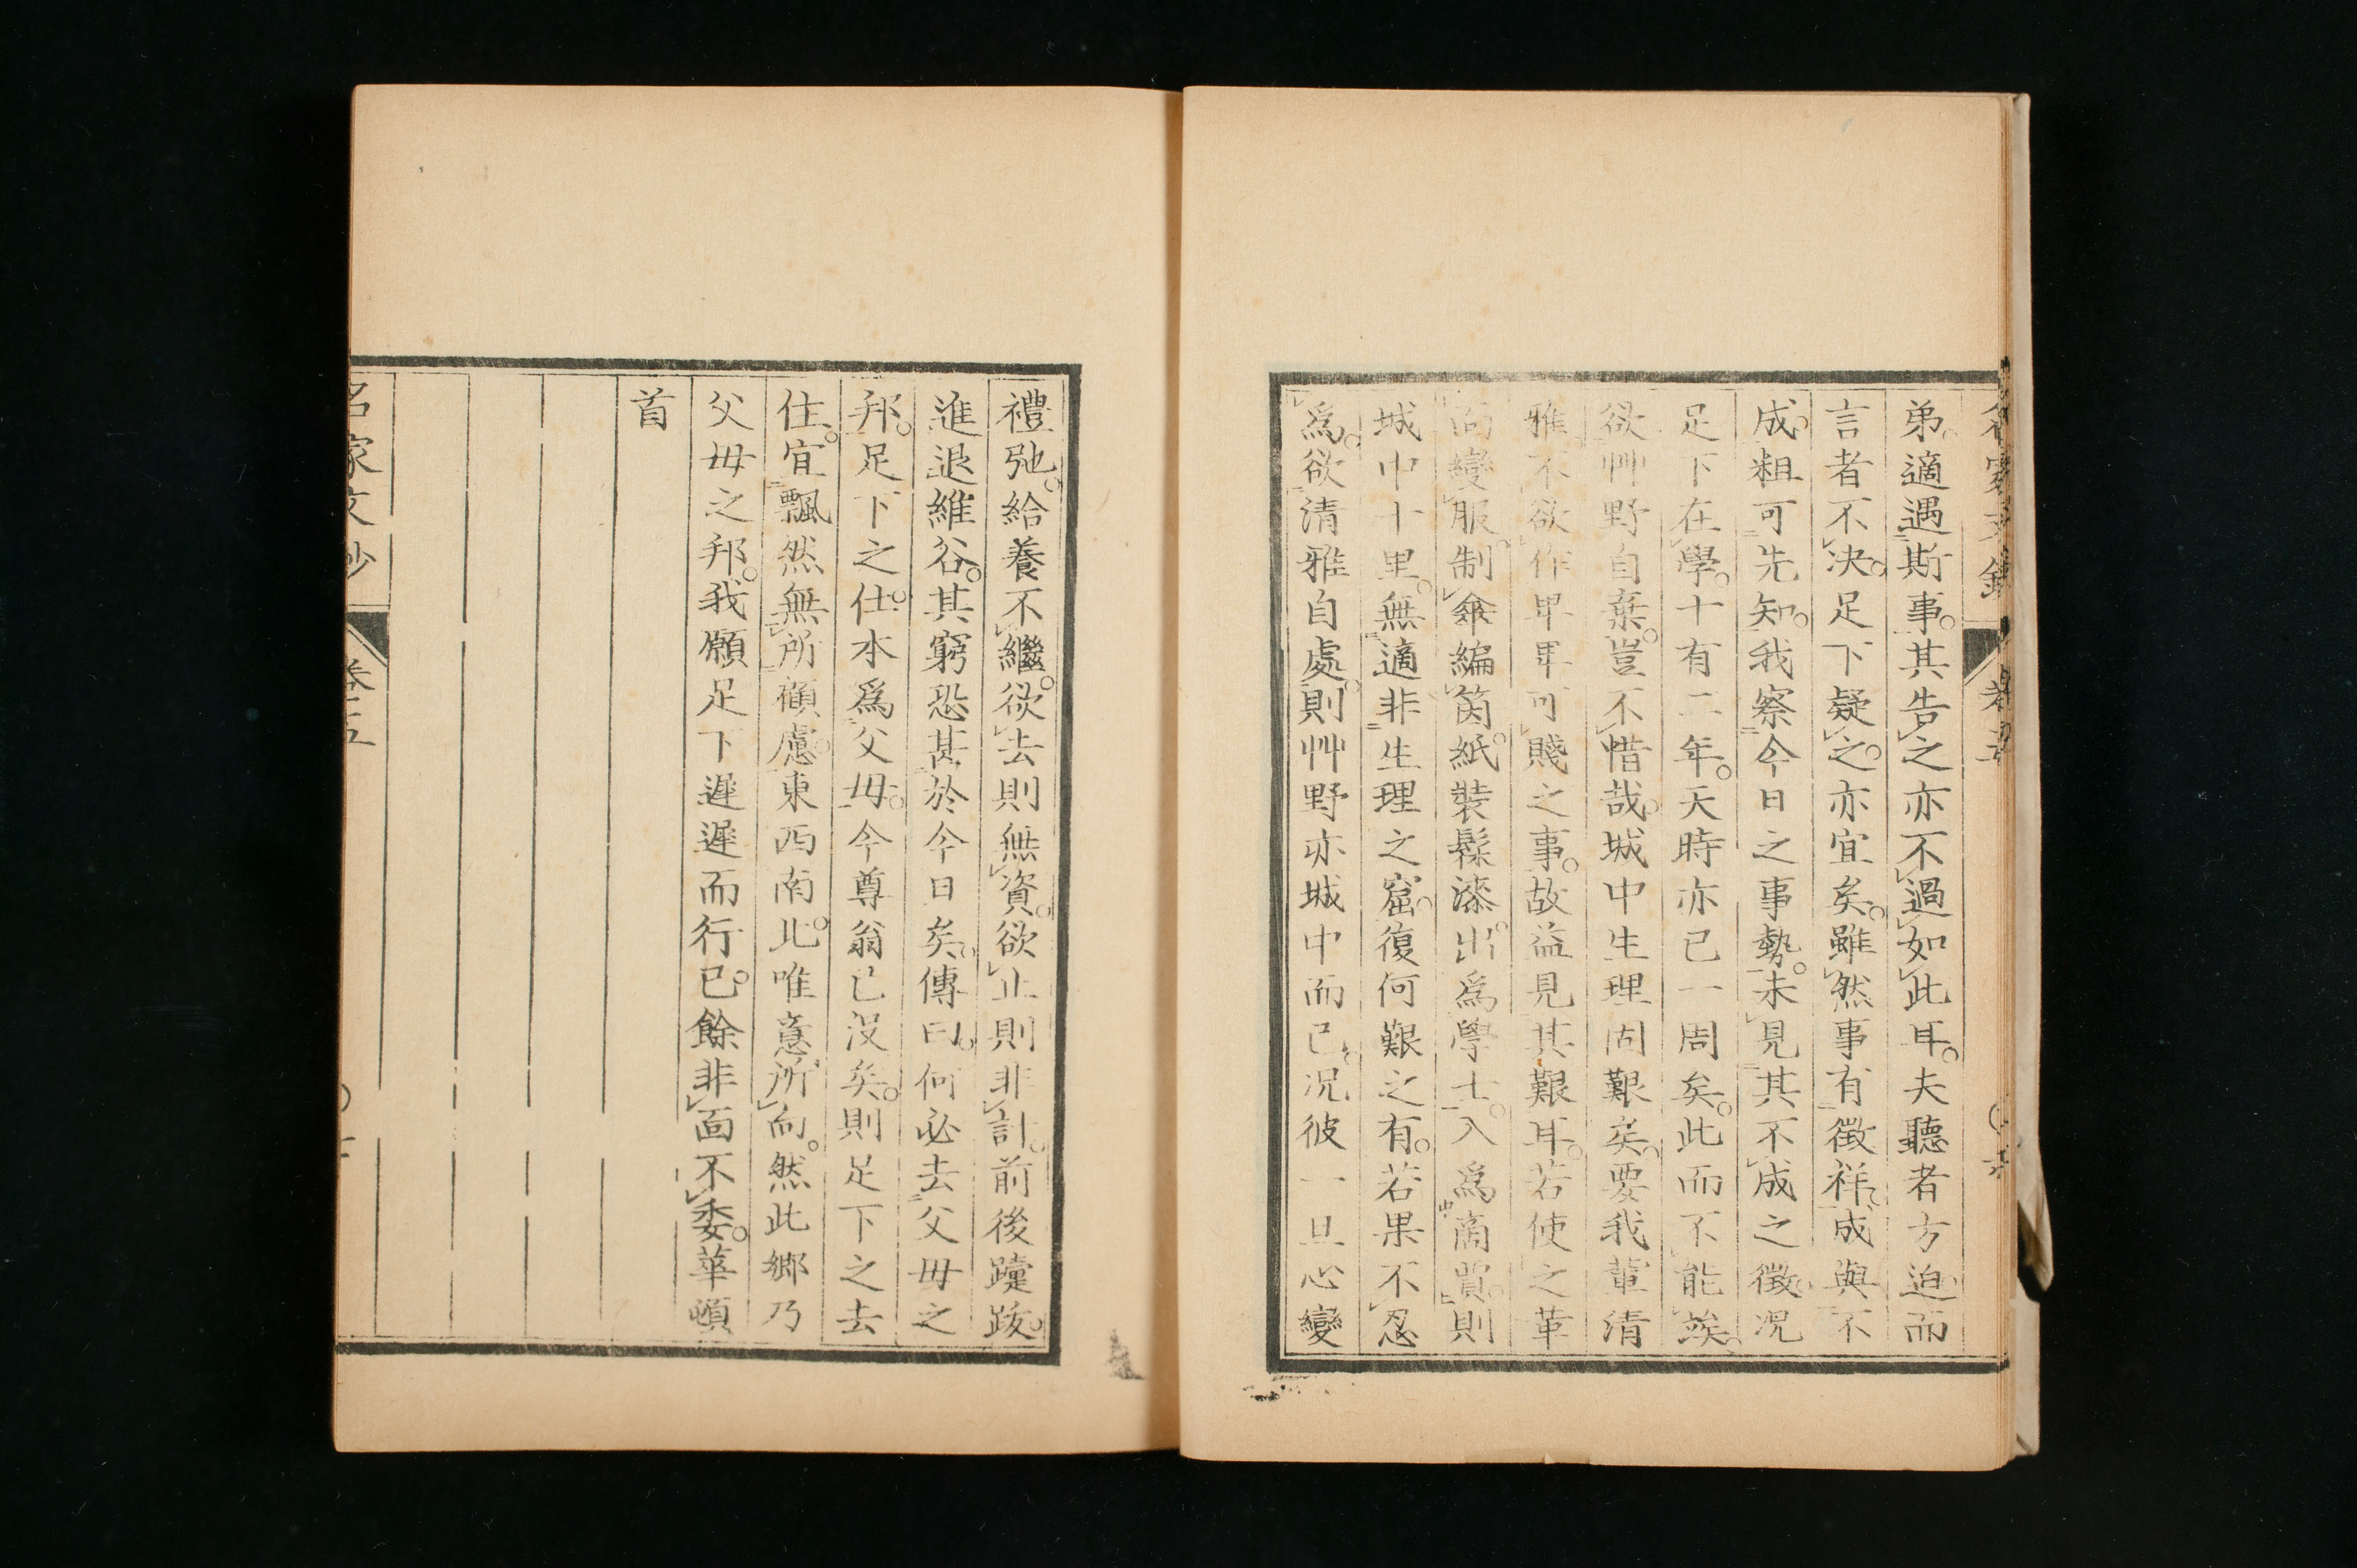 弟。適遇斯事。其告之亦不過如此耳。夫聽者方迫。而
言者不决。足下疑之。亦宜矣。雖然事有徵祥。成與不
成。粗可先知。我察今日之事勢。未見其不成之徵。况
足下在學。十有二年。天時亦已一周矣。此而不能竢。
欲艸野自棄。豈不惜哉。城中生理固艱矣。要我輩清
雅。不欲作卑卑可賤之事。故益見其艱耳。若使之革
面變服。制傘編筃。紙裝髹漆。出爲學士。入爲商賈。則
城中十里。無適非生理之窟。復何艱之有。若果不忍
爲。欲清雅自處。則艸野亦城中而已。况彼一旦心變
禮弛。給養不繼。欲去則無資。欲止則非計。前後躓跋。
進退維谷。其窮恐甚於今日矣。傳曰。何必去父母之
邦。足下之仕。本爲父母。今尊翁已没矣。則足下之去
住。宜飄然無所顧慮。東西南北。唯意所向。然此鄉乃
父母之邦。我願足下遲遲而行已。餘非面不委。華頓
首
名家文抄
卷之五